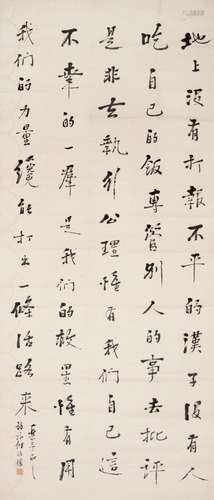 地上沒有打報不平的漢子沒有人
吃自己的飯專管別人的事去批評
是非去執行公理惟有我們自己這
不幸的一羣是我們的救星惟有用
我們的力量纔能打出一條活路來